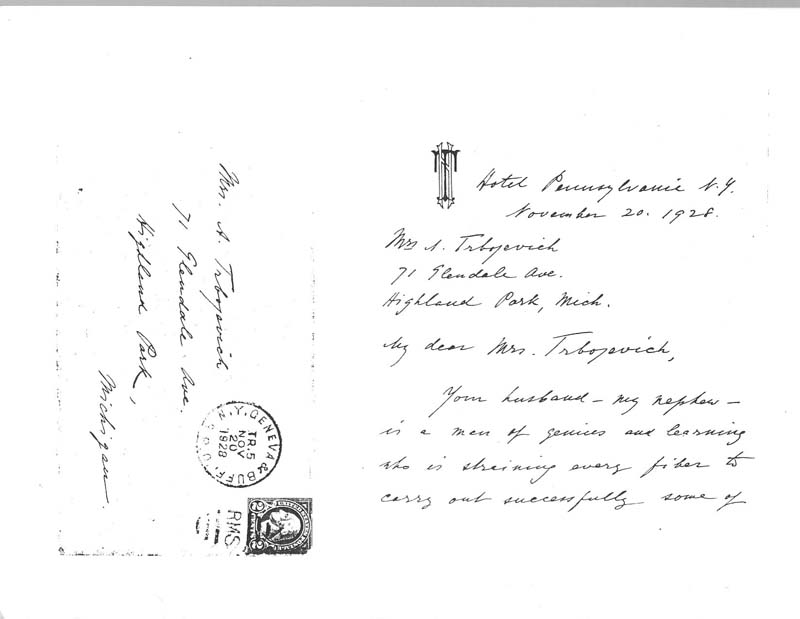 Mrs. N. Trbojevich
71 Glendale Ave.
Highland Park,
Michigan.
N.Y. GENEVA & BUFF. R.P.O.
TR.5
NOV
20
1928
RMS
2 2
Hotel Pennsylvania N.Y.
November 20. 1928.
Mrs N. Trbojevich
71 Glendale Ave.
Highland Park, Mich.
My dear Mrs. Trbojevich,
Your husband – my nephew –
is a man of genius and learning
who is straining every fiber to
carry out successfully some of